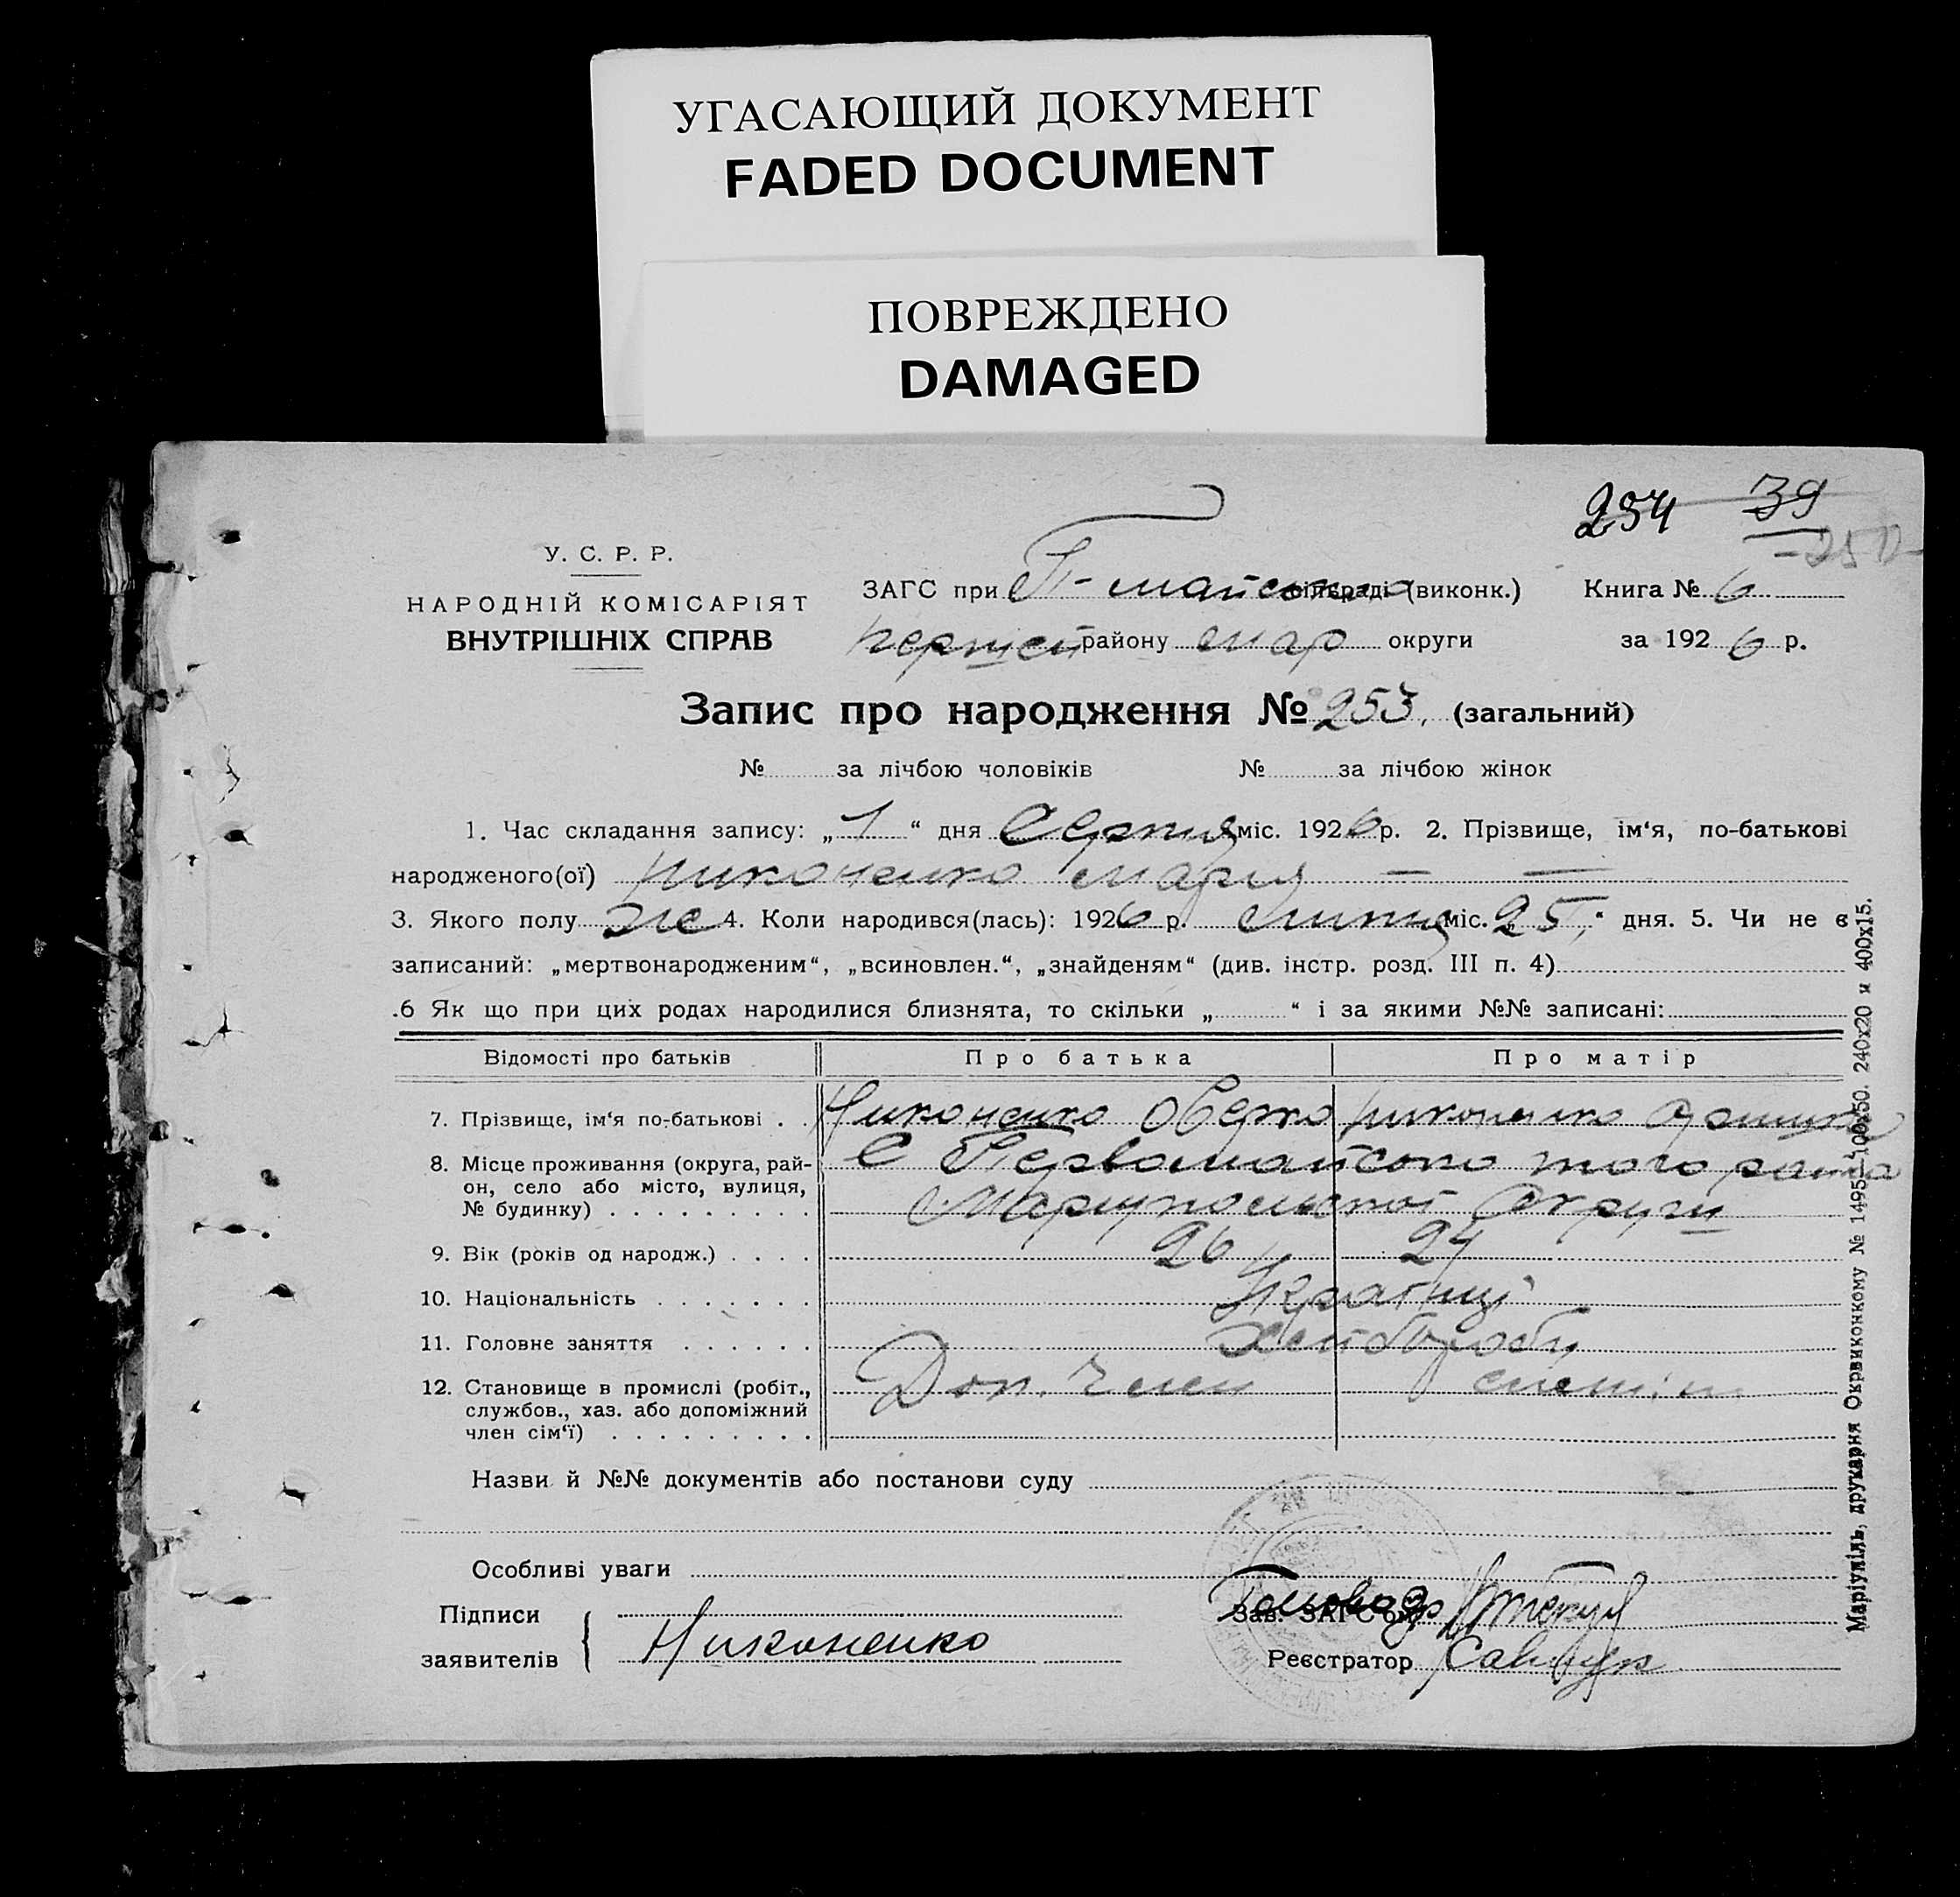 УГАСАЮЩИЙ ДОКУМЕНТ
FADED DOCUMENT
ПОВРЕЖДЕНО
DAMAGED
234 39
250
У. С. Р. Р.
НАРОДНІЙ КОМІСАРІЯТ
ВНУТРІШНІХ СПРАВ
ЗАГС при П-майська сільраді (виконк.) Книга № 6
району мар округи за 1926 р.
Запис про народження № 253. (загальний)
№ за лічбою чоловіків № за лічбою жінок
1. Час складання запису: „1“ дня Серпня міс. 1926 р. 2. Прізвище, ім‘я, по-батькові
народженого(ої) Никоненко Мария — —
3. Якого полу Же 4. Коли народився(лась): 1926 р. Липня міс. „25“ дня. 5. Чи не є
записаний: „мертвонародженим“, „всиновлен.“, „знайденям“ (див. інстр. розд. III п. 4)
.6 Як що при цих родах народилися близнята, то скільки „ “ і за якими №№ записані:
Відомості про батьків Про батька Про матір
7. Прізвище, ім‘я по-батькові . . Никоненко Оверко Никоненко
8. Місце проживання (округа, рай- С Первомайсько того
он, село або місто, вулиця,
№ будинку) . . . . . . . . . Мариупольської Округи
9. Вік (років од народж.) . . . . 26 24
10. Національність . . . . . . . Українці
11. Головне заняття . . . . . . Хліборобы
12. Становище в промислі (робіт., Доп. Член
службов., хаз. або допоміжний
член сім‘ї) . . . . . . . . .
Назви й №№ документів або постанови суду
Особливі уваги
Підписи Зав. ЗАГС‘ом Голова
заявителів { Никоненко Реєстратор Савчук
Маріупіль, друкарня Окрвиконкому № 1495—100х50. 240х20 и 400х15.